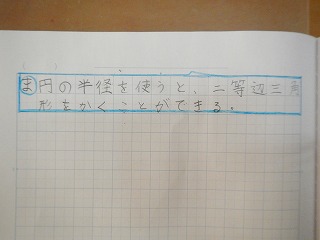 ま 円の半径を使うと、二等辺三角
形をかくことができる。